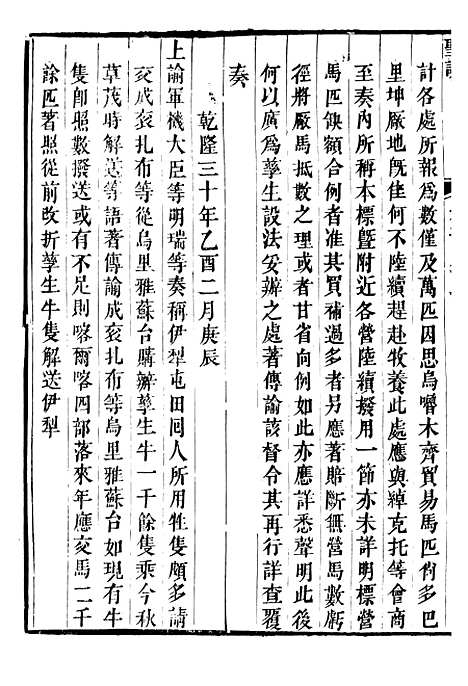 聖訓
計各處所報爲數僅及萬匹因思烏嚕木齊貿易馬匹尙多巴
里坤廠地旣佳何不陸續趕赴牧養此處應與綽克托等會商
至奏內所稱本標暨附近各營陸續撥用一節亦未詳明標營
馬匹缺額合例者准其買補過多者另應著賠斷無營馬數虧
徑將廠馬抵數之理或者甘省向例如此亦應詳悉聲明此後
何以廣爲孳生設法妥辦之處著傳諭該督令其再行詳查覆
奏
乾隆三十年乙酉二月庚辰
上諭軍機大臣等明瑞等奏稱伊犁屯田回人所用牲隻頗多請
交成衮扎布等從烏里雅蘇台購辦孳生牛一千餘隻乘今秋
草茂時解送等語著傳諭成衮扎布等烏里雅蘇台如現有牛
隻卽照數撥送或有不足則喀爾喀四部落來年應交馬二千
餘匹著照從前改折孳生牛隻解送伊犁